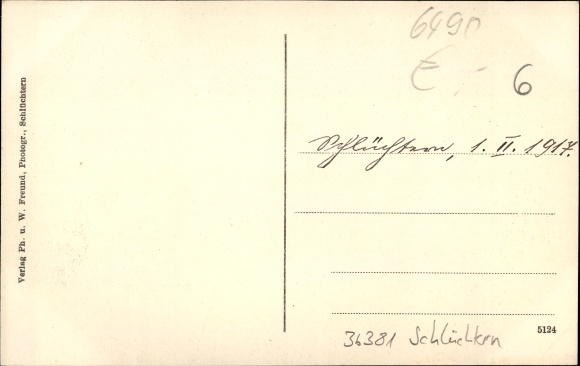 Verlag Ph. u. W. Freund, Photogr., Schlüchtern
6490
€ -
6
Schlüchtern, 1. II. 1917.
36381 Schlüchtern
5124